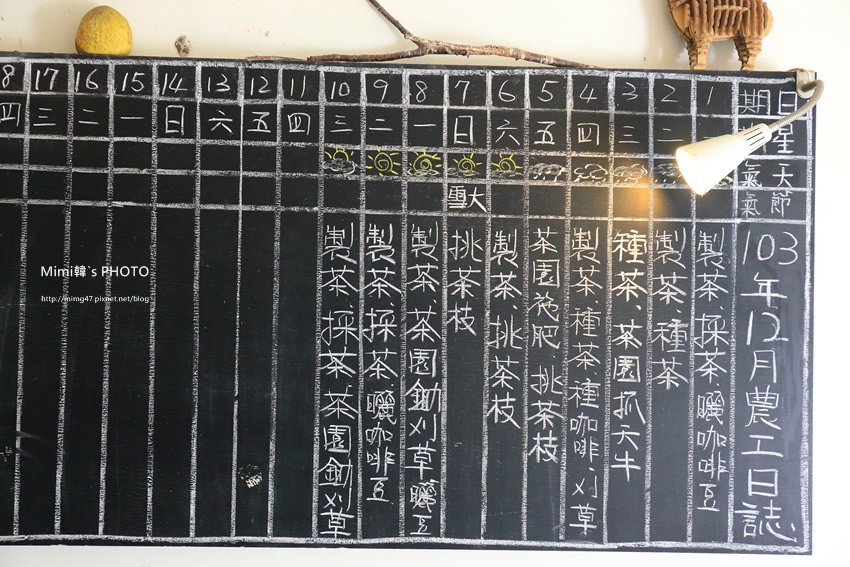 日期
星
天氣
節氣
103年12月農工日誌
1
製茶、採茶、曬咖啡豆
2
二
製茶、種茶
3
三
種茶、茶園抓天牛
4
四
製茶、種茶種咖啡、刈草
5
五
茶園施肥、挑茶枝
6
六
製茶、挑茶枝
7
日
大雪
挑茶枝
8
一
製茶、茶園鋤刈草曬豆
9
二
製茶、採茶、曬咖啡豆
10
三
製茶、採茶、茶園鋤刈草
11
四
12
五
13
六
14
日
15
一
16
二
17
三
8
四
Mimi韓`s PHOTO
http://mimg47.pixnet.net/blog